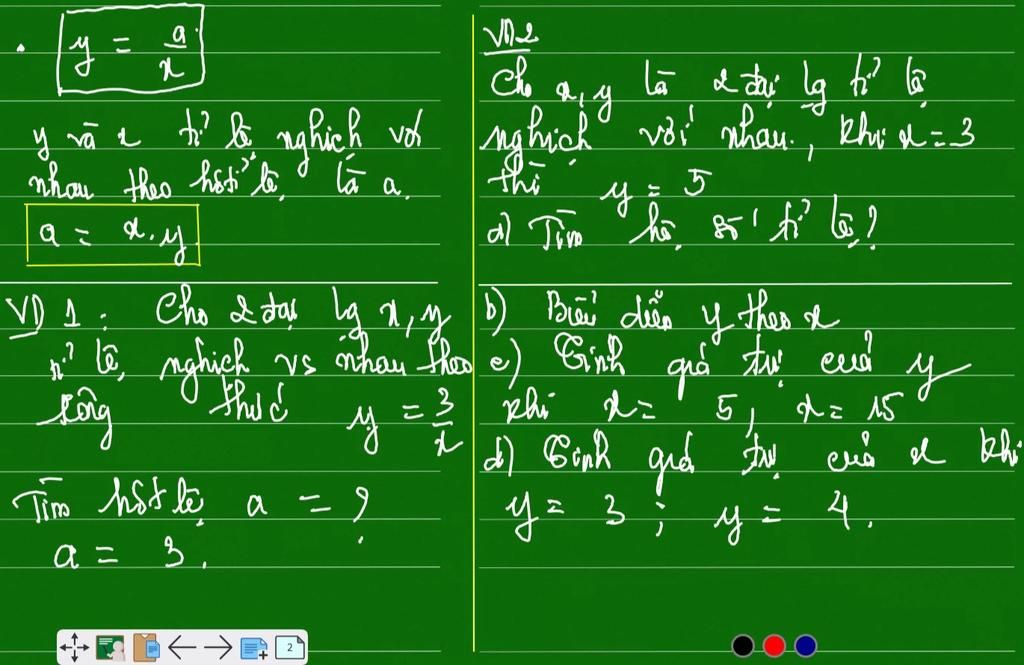 y = a/x
y và x tỉ lệ nghịch với
nhau theo hstỉ lệ là a.
a = x.y
VD 1 : Cho 2 đại lg x, y
tỉ lệ nghịch vs nhau theo
công thức y = 3/x
Tìm hstlệ a = ?
a = 3.
VD2
Cho x, y là 2 đại lg tỉ lệ
nghịch với nhau, khi x = 3
thì y = 5
a) Tìm hệ số tỉ lệ?
b) Biểu diễn y theo x
c) Tính giá trị của y
khi x = 5, x = 15
d) Tính giá trị của x khi
y = 3 ; y = 4.
2